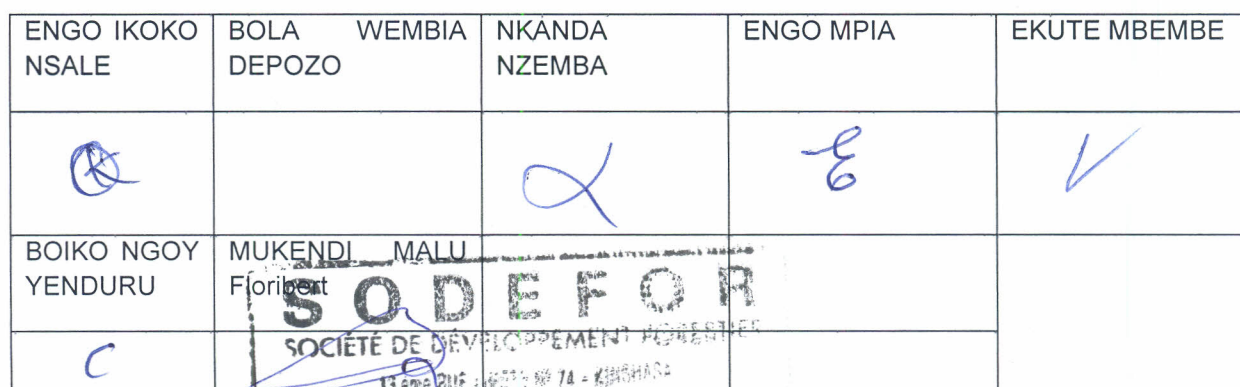 ENGO IKOKO NSALE
BOLA WEMBIA DEPOZO
NKANDA NZEMBA
ENGO MPIA
EKUTE MBEMBE
BOIKO NGOY YENDURU
MUKENDI MALU Floribert
SODEFOR
SOCIÉTÉ DE DÉVELOPPEMENT FORESTIER
13ème RUE Nº 74 - KINSHASA